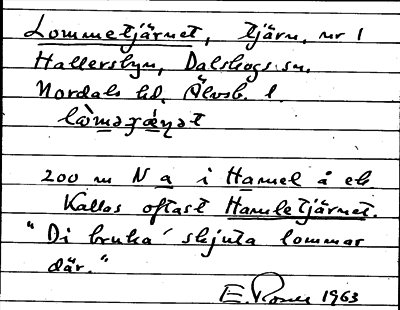 Lommetjärnet, tjärn, nr 1
Hallersbyn, Dalskogs sn.
Nordals hd. Älvsb. l.
200 m N a i Hamel å ek
Kallas oftast Hamletjärnet.
"Di bruka' skjuta lommar
där."
E. Rosen 1963